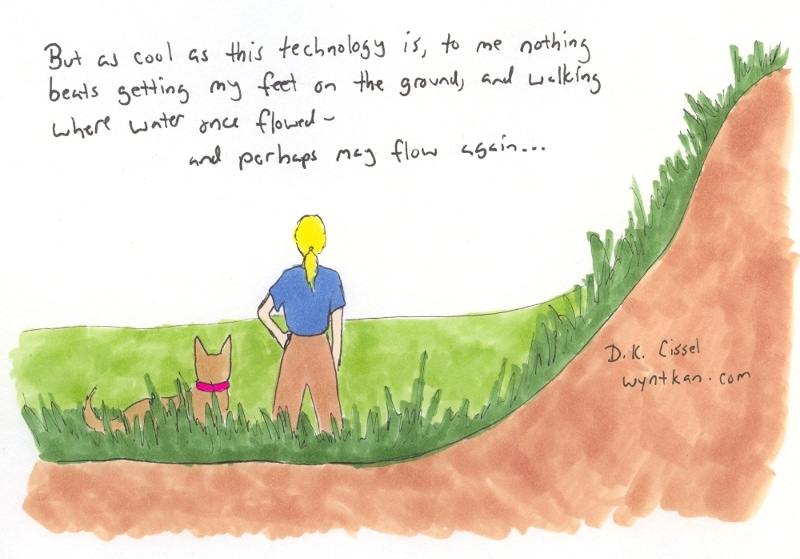 But as cool as this technology is, to me nothing
beats getting my feet on the ground, and walking
where water once flowed~
and perhaps may flow again...
D.K. Cissel
wyntkan.com